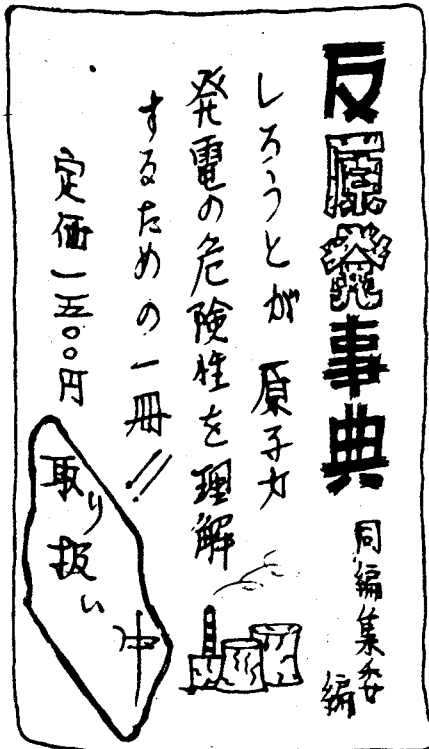 反原発事典
同編集委編
しろうとが原子力
発電の危険性を理解
するための一冊!!
定価一五〇〇円
取り扱い中